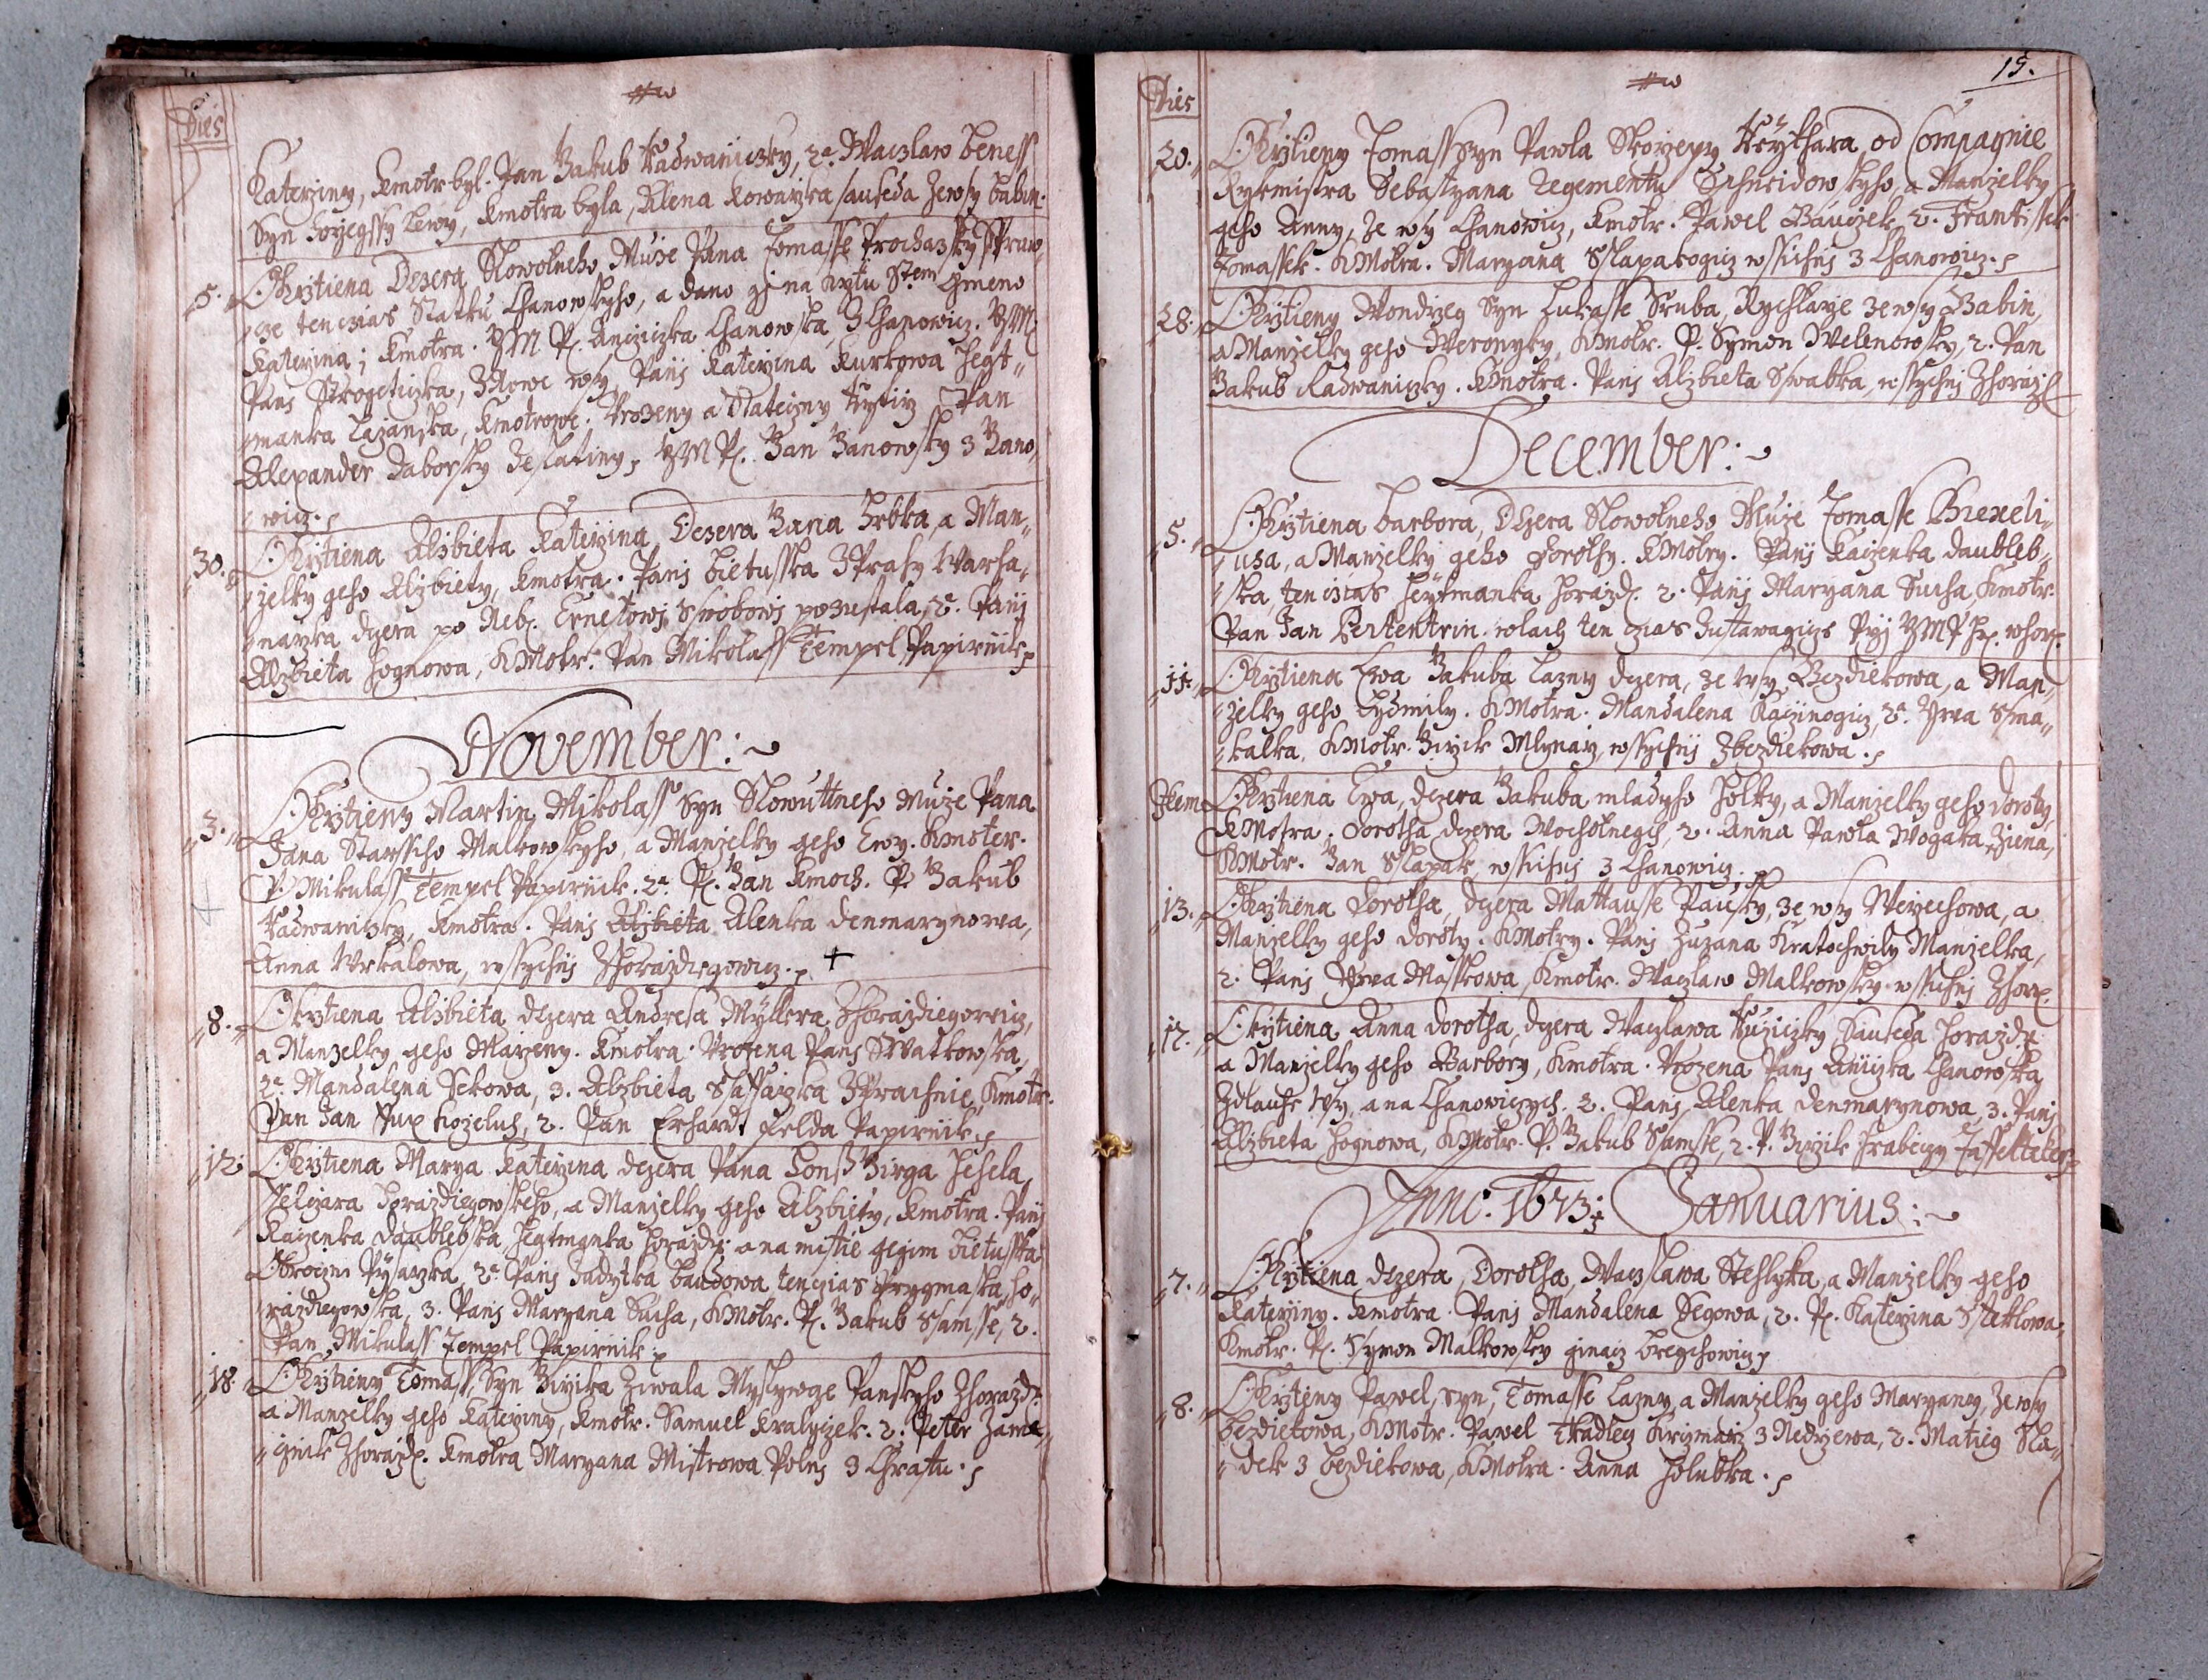 Dies
Kateržiny, Kmotr byl. Jan Jakub Radwaniczky, 2ª. Waczlaw Beness
Syn horžegssy Lewy, Kmotra byla, Alena Kowaržka sauseda Zewsy babin.
5. Chrztiena Dczera Slowotneho Muže Pana Tomasse Prochazky Spraw-
cze ten czias Statku Chanowskyho, a dano gi na krztu Stem Gmeno
Kateržina; Kmotra. VM P. Anicizka Chanowska Z Chanowicz. VM
Pani Kateržina Kurkowa Hegt-
manka Lazanska, Kmotrowe. Urozeny a Stateczny Rytirz Pan
Alexander Daborsky Zeslatiny, VM P. Jan Janowsky z Jano-
wicz.
30. Chrztiena Alžbieta Kateržina Dczera Jana Hrbka, a Man-
želky geho Alžbiety, Kmotra. Pani Bietusska Z Prahy Warha-
narzka dczera po Neb. Ernestowi Swobowi pozustala, 2ª. Pani
Alžbieta Hognowa, KMotr. Pan Mikolass Tempel Papirnik.
November:
3. Chrztieny Martin Mikolass Syn Slowuttneho Muže Pana
Jana Starssiho Malkowskyho, a Manželky geho Ewy. Kmoter.
P. Mikulass Tempel Papirnik. 2ª. P. Jan Kmoch. P. Jakub
Radwaniczky, Kmotra. Pani Alžbieta Alenka Denmarynowa,
Anna Wrkalowa, wssychni Zhoraždiegowicz. +
8. Chrztiena Alžbieta dczera Andresa Myllera Zhoraždiegowicz,
a Manželky geho Marženy. Kmotra. Urozena Pani SWatkowska,
2ª. Mandalena Sekowa, 3. Alžbieta Slassarzka Z Prachnie, Kmotr.
Pan Jan Fux koželuh, 2. Pan Erhardt Felda Papirnik.
12. Chrztiena Marya Kateržina dczera Pana Honß Jirga Hehela,
Selczara horaždiegowskeho, a Manželky geho Alžbiety, Kmotra. Pani
Kaczenka Daublebska Hegtmanka horažd: a na mistie gegim Bietusska
Obrocžni Pysarzka, 2ª. Pani Judytka Baudowa, tenczias Prygmaska ho-
raždiegowska, 3. Pani Maryana Sucha, KMotr. P. Jakub Ssamsse, 2.
Pan Mikulass Tempel Papirnik.
18. Chrztieny Tomass, Syn Jiržika Ziwala Myslywge Panskyho Zhoražd:
a Manželky geho Kateržiny, Kmotr. Samuel Kralyczek. 2. Peter Zame-
cznik Zhoražd. Kmotra Maryana Mistrowa Polni z Chratu.
15.
Dies
20. Chrztieny Tomass Syn Pawla Skoržepy Reythara od Compagnie
Rykmistra Sebastyana Regementu Schneidowskyho, a Manželky
geho Anny, Ze wsy Chanowicz, Kmotr. Pawel Baužek, 2. Frantissek
Tomassek. KMotra. Maryana Sslapakogicz wssichni z Chanowicz.
28. Chrztieny Wondrzeg Syn Lukasse Sruba, Rychtarze ze wsy Babin,
a Manželky geho Weronyky, KMotr. P. Symon Welenowsky, 2. Pan
Jakub Radwaniczky. KMotra. Pani Alžbieta Swabka, wssychni Zhoražd.
December:
5. Chrztiena Barbora, Dczera Slowotneho Muže Tomasse Brexeli-
usa, a Manželky geho Dorothy. KMotry. Pani Kaczenka Daubleb-
ska, ten czias Heytmanka horažd. 2. Pani Maryana Sucha, Kmotr.
Pan Jan Pertentrin wlach ten czias Zustawagicze Pržj VMP Hr. whor.
11. Chrztiena Ewa Jakuba Lazny dczera, ze wsy Bezdiekowa, a Man-
želky geho Lydmily. KMotra. Mandalena Kaczinogicz, 2ª. Yrva Sma-
kalka, KMotr. Jiržik Mlynarz, wssychni Zbezdiekowa.
Item Chrztiena Ewa, dczera Jakuba mladyho Holky, a Manželky geho Doroty,
KMotra. Dorotha dczera Wocholnegch, 2. Anna Pawla Wogaka žiena,
KMotr. Jan Sslapak, wssichni z Chanowicz.
13. Chrztiena Dorotha, dczera Mattausse Pausky, ze wsy Weržechowa, a
Manželky geho Doroty. KMotry. Pani Zuzana Kratochwily Manželka,
2. Pani Yrva Masskowa, Kmotr. Waczlaw Malkowsky wssichni Zhor.
17. Chrztiena Anna Dorotha, dczera Waczlawa Ružiczky Sauseda horažd.
a Manželky geho Barbory, Kmotra. Urozena Pani Anižka Chanowska
Zdlauhe Wsy, a na Chanowiczych. 2. Pani Alenka Denmarynowa, 3. Pani
Alžbieta Hognowa, KMotr. P. Jakub Ssamsse, 2. P. Jiržik Hrabiecy Taffelteker
Anno: 1673: Januarius:
7. Chrztiena dczera Dorotha, Waczlawa Stehlyka, a Manželky geho
Kateržiny. Kmotra. Pani Mandalena Segowa, 2. P. Kateržina Stetkowa.
Kmotr. P. Ssymon Malkowsky ginacz Bregchowicz
8. Chrztieny Pawel, syn, Tomasse Lazny, a Manželky geho Maryany, Ze wsy
Bezdiekowa, KMotr. Pawel Tkadlecz Krczmarz z Nedrzewa, 2. Matieg Sla-
dek z Bezdiekowa, KMotra. Anna Holubka.